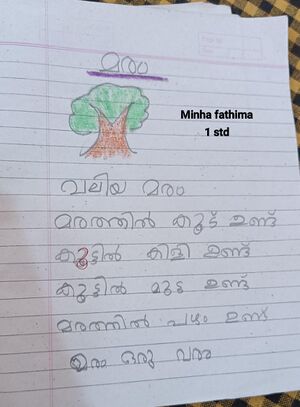 മരം
Minha fathima
1 std
വലിയ മരം
മരത്തിൽ കൂട് ഉണ്ട്
കൂട്ടിൽ കിളി ഉണ്ട്
കൂട്ടിൽ മുട്ട ഉണ്ട്
മരത്തിൽ പഴം ഉണ്ട്
മരം ഒരു വരം